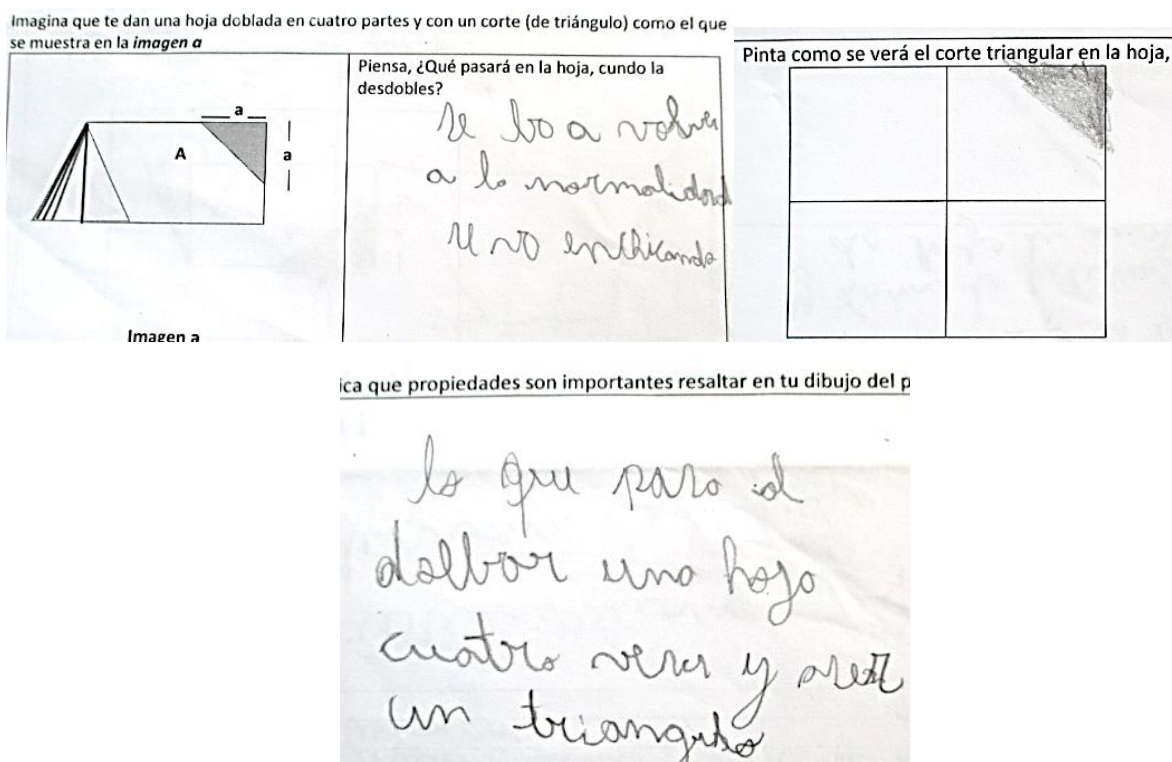 Imagina que te dan una hoja doblada en cuatro partes y con un corte (de triángulo) como el que
se muestra en la imagen a
a
A
a
Imagen a
Piensa, ¿Qué pasará en la hoja, cundo la
desdobles?
se ba a volver
a la normalidad
Pinta como se verá el corte triangular en la hoja,
ica que propiedades son importantes resaltar en tu dibujo del p
lo que paso al
dolbar una hoja
cuatro veces y
un triangulo